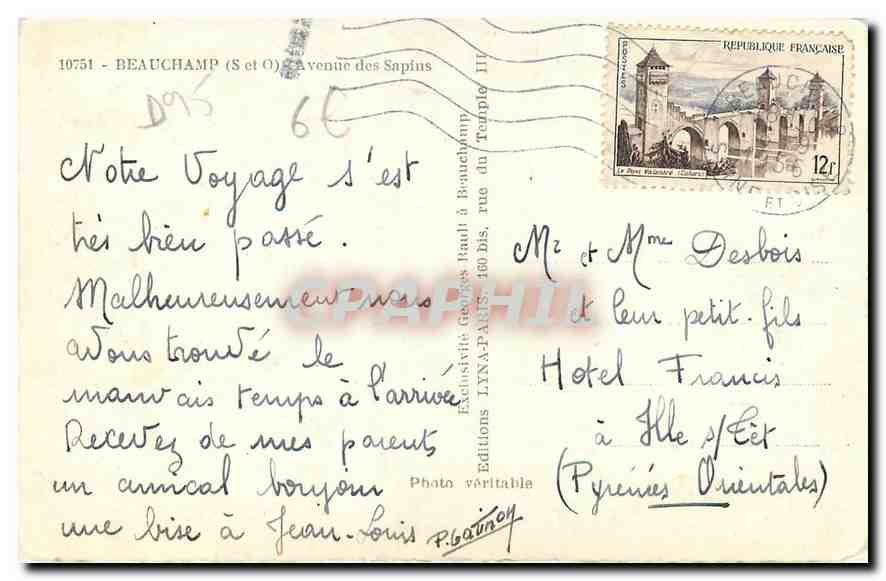 10751 - BEAUCHAMP (S et O) - Avenue des Sapins
D95
6€
Notre Voyage s'est
très bien passé.
Malheureusement nous
avons trouvé le
mauvais temps à l'arrivée
Recevez de mes parents
un amical bonjour
une bise à Jean-Louis
Exclusivité Georges Rault à Beauchamp
Editions LYNA-PARIS, 160 bis, rue du Temple III
Photo véritable
CPAPHIL
POSTES
REPUBLIQUE FRANÇAISE
Le Pont Valentré (Cahors)
12f
ET
Mr et Mme Desbois
et leur petit-fils
Hotel Francis
à Ille s/Têt
(Pyrénées Orientales)